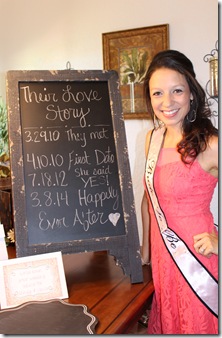 Their Love
Story
3.29.10 They met
4.10.10 First Date
7.18.12 She said
YES!
3.8.14 Happily
Ever After
Be